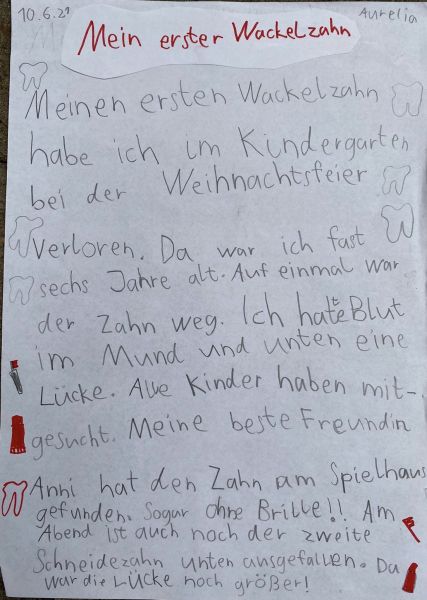 10.6.21 Aurelia
Mein erster Wackelzahn
Meinen ersten Wackelzahn
habe ich im Kindergarten
bei der Weihnachtsfeier
verloren. Da war ich fast
sechs Jahre alt. Auf einmal war
der Zahn weg. Ich hatte Blut
im Mund und unten eine
Lücke. Alle Kinder haben mit-
gesucht. Meine beste Freundin
Anni hat den Zahn am Spielhaus
gefunden. Sogar ohne Brille!! Am
Abend ist auch noch der zweite
Schneidezahn unten ausgefallen. Da
war die Lücke noch größer!